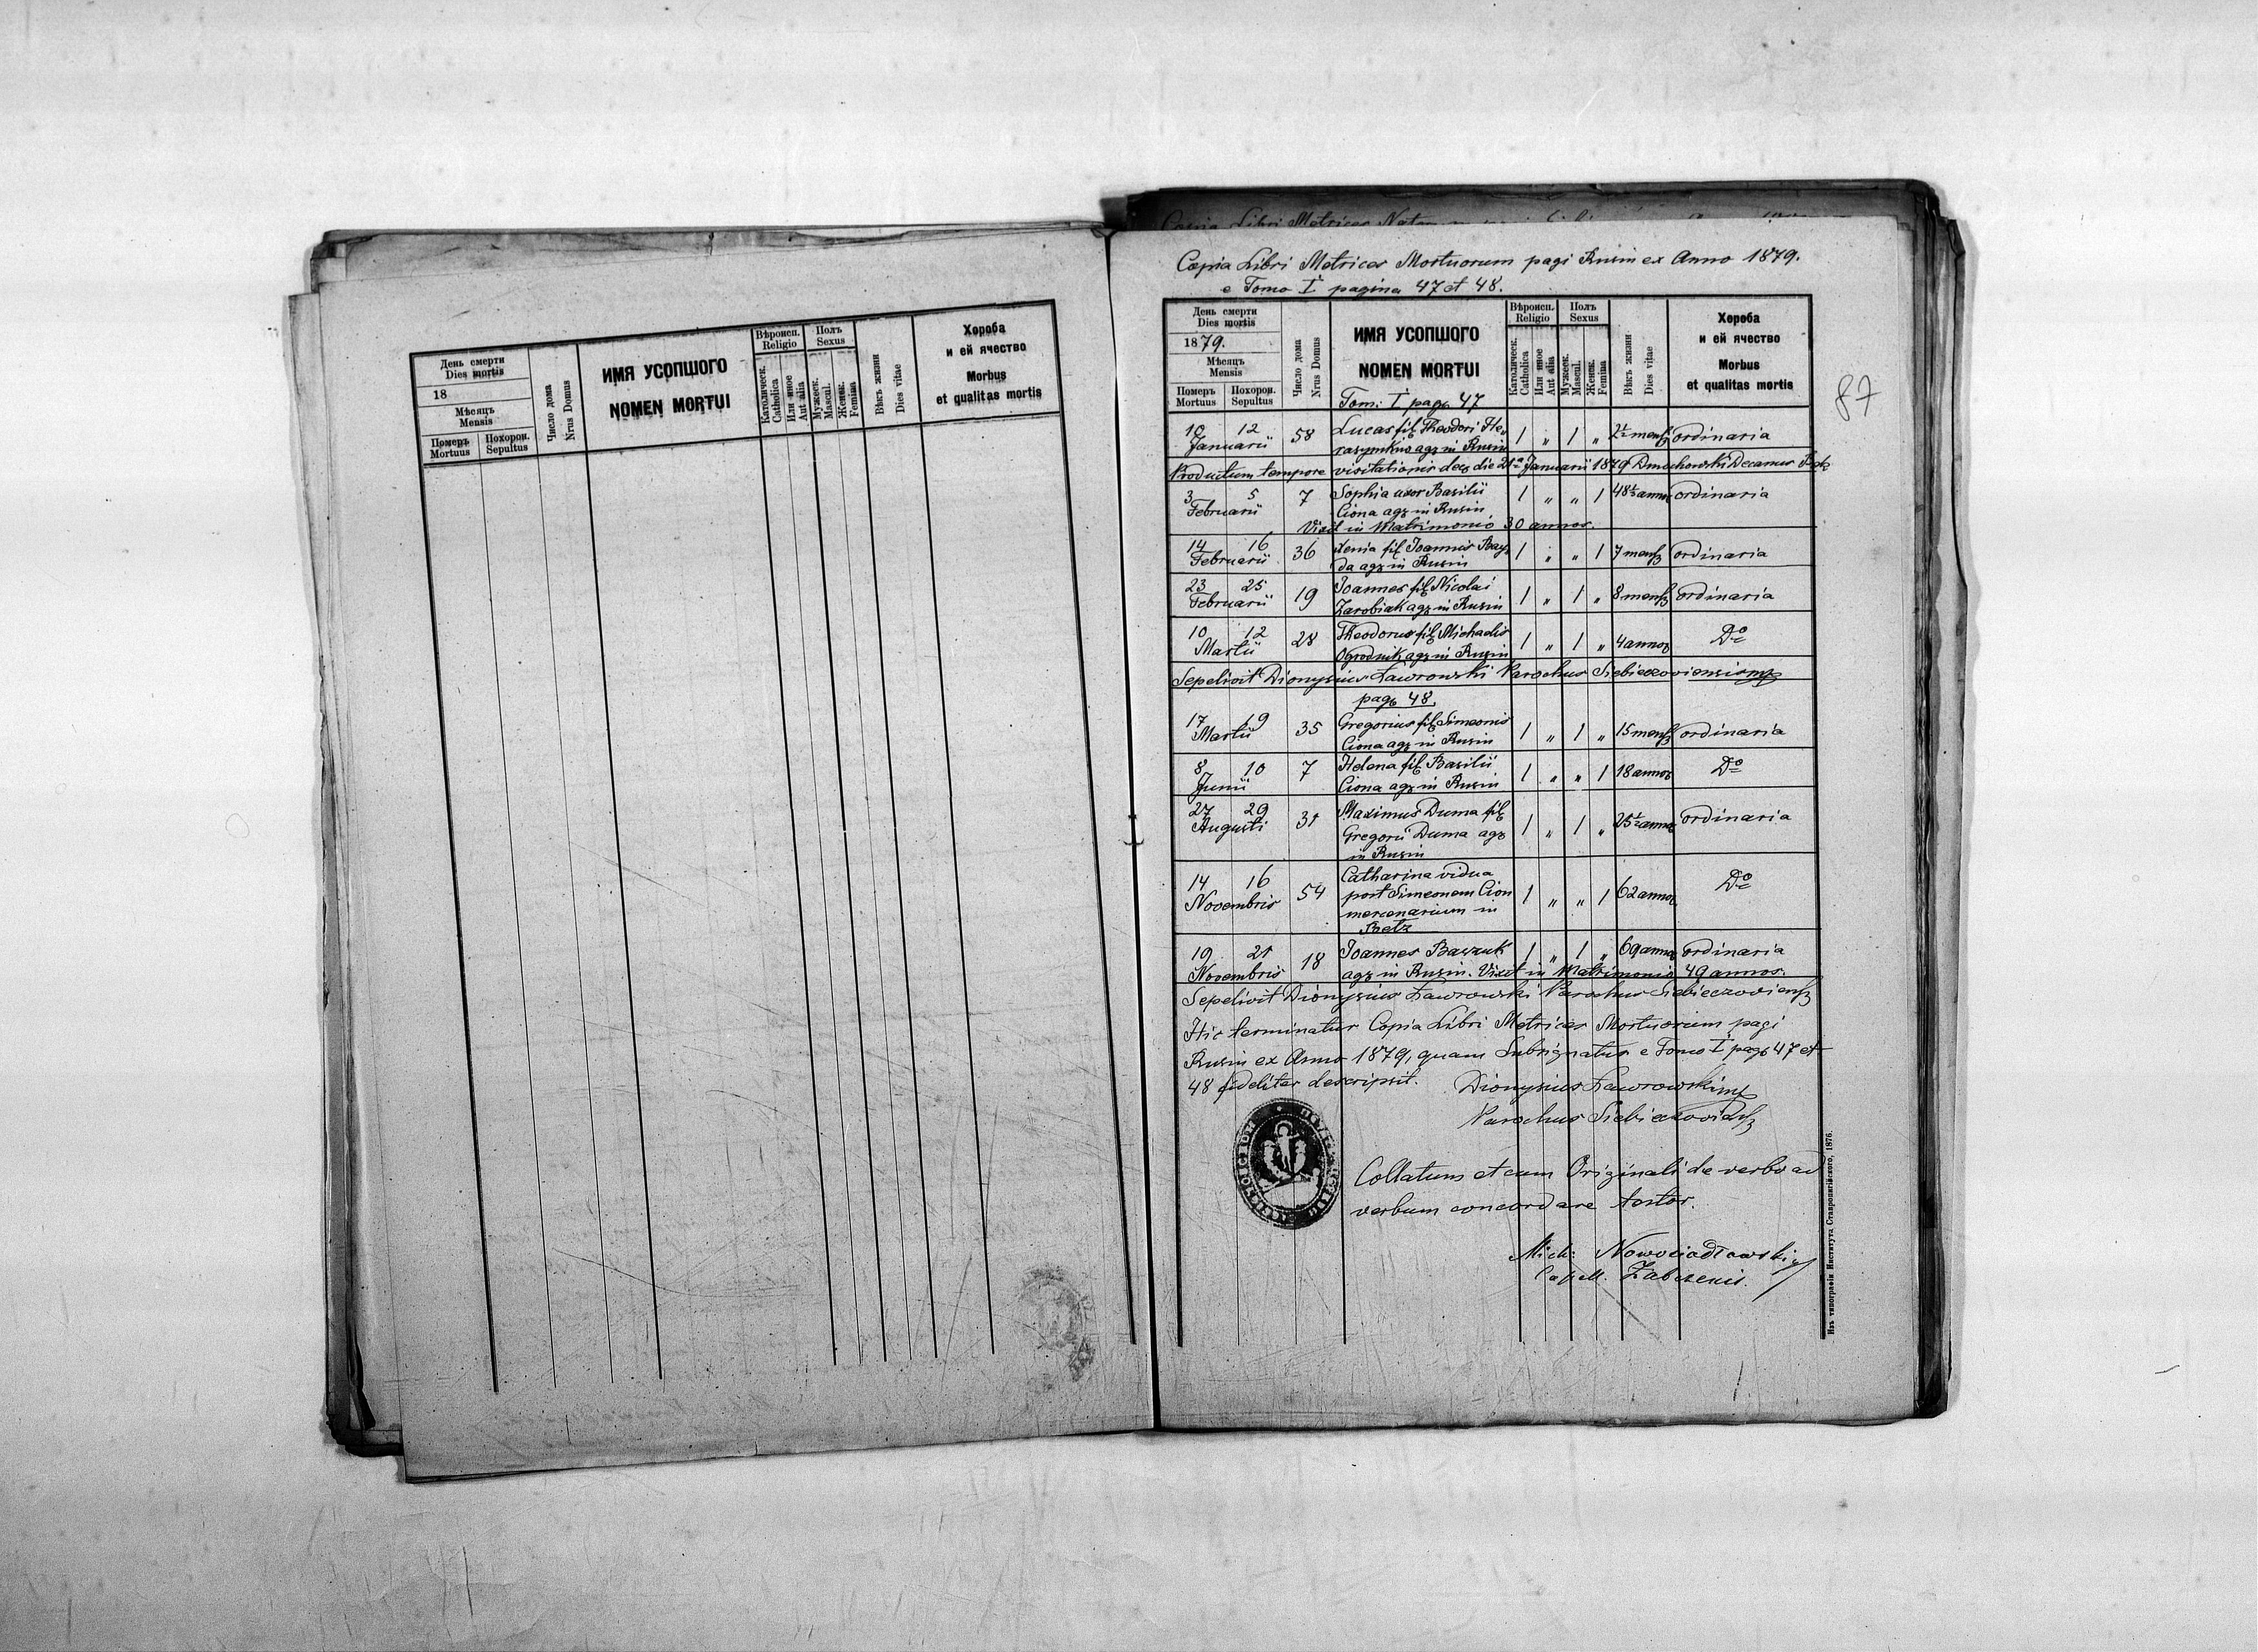 День смерти
Dies mortis
18
Мѣсяцъ
Mensis
Померъ
Mortuus
Похорон.
Sepultus
Число дома
Nrus Domus
ИМЯ УСОПШОГО
NOMEN MORTUI
Вѣроисп.
Religio
Католическ.
Catholica
Или иное
Aut alia
Полъ
Sexus
Мужеск.
Mascul.
Женск.
Femina
Вѣкъ жизни
Dies vitae
Хороба
и ей ячество
Morbus
et qualitas mortis
Copia Libri Metrices Mortuorum pagi Rusin ex Anno 1879.
e Tomo I pagina 47 et 48.
87
День смерти
Dies mortis
1879.
Мѣсяцъ
Mensis
Померъ
Mortuus
Похорон.
Sepultus
Число дома
Nrus Domus
ИМЯ УСОПШОГО
NOMEN MORTUI
Tom: I pag. 47
Вѣроисп.
Religio
Католическ.
Catholica
Или иное
Aut alia
Полъ
Sexus
Мужеск.
Mascul.
Женск.
Femina
Вѣкъ жизни
Dies vitae
Хороба
и ей ячество
Morbus
et qualitas mortis
10 12 58 Lucas fil Theodori He- 1 " 1 " mens ordinaria
Januarii agr in Rusin
Productum tempore visitationis die 21 Januarii 1879 Decanus
3 5 7 Sophia uxor Basilii 1 " " 1 48½ annos ordinaria
Februarii Ciona agr in Rusin
Vixit in Matrimonio 30 annos.
14 16 36 Xenia fil Joannis Bay- 1 " " 1 7 mens ordinaria
Februarii da agr in Rusin
23 25 19 Joannes fil Nicolai 1 " 1 " 8 mens ordinaria
Februarii Zarobiak agr in Rusin
10 12 28 Theodorus fil Michaelis 1 " 1 " 4 annos Do
Martii Ogrodnik agr in Rusin
Sepelivit Dionysius Ławrowski Parochus Siebieczoviensis mp
pag. 48.
17 19 35 Gregorius fil Simeonis 1 " 1 " 15 mens ordinaria
Martii Ciona agr in Rusin
8 10 7 Helena fil Basilii 1 " " 1 18 annos Do
Junii Ciona agr in Rusin
27 29 31 Maximus Duma fil 1 " 1 " annos ordinaria
Augusti Gregorii Duma agr
in Rusin
14 16 54 Catharina vidua 1 " " 1 62 annos Do
Novembris post Simeonem Cion
mercenarium in
Betz
19 21 18 Joannes 1 " 1 " 69 annos ordinaria
Novembris agr in Rusin. Vixit in Matrimonio 49 annos.
Sepelivit Dionysius Ławrowski Parochus Siebieczoviens
Hic terminatur Copia Libri Metrices Mortuorum pagi
Rusin ex Anno 1879, quam Subsignatus e Tomo I pag. 47 et
48 fideliter descripsit. Dionysius Ławrowski mp
Parochus Siebieczoviens
Collatum et cum Originali de verbo ad
verbum concordare testor.
Mich: Nowosiadłowski
Capell. Żabczens.
Изъ типографіи Института Ставропигійского, 1876.